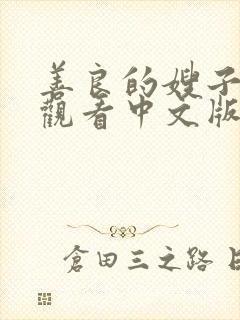 善良的嫂子
觀看中文版
倉田三之路